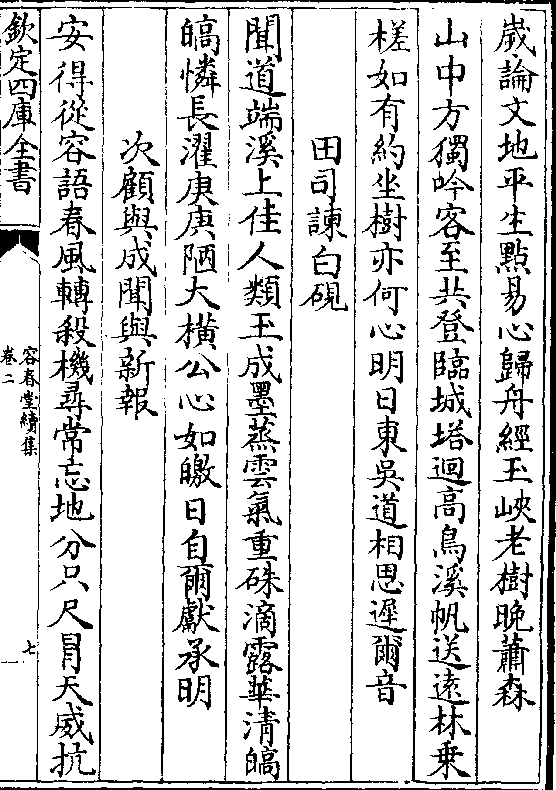 嵗論文地平生點易心歸舟經玉峽老樹晚蕭森
山中方獨吟客至共登臨城塔迴高鳥溪帆送遠林乗
槎如有約坐樹亦何心明日東吳道相思遲爾音
田司諫白硯
聞道端溪上佳人類玉成墨蒸雲氣重硃滴露華清皜
皜憐長濯庚庚陋大横公心如皦日自爾獻承明
次顧與成聞與新報
安得從容語春風轉殺機尋常忘地分只尺冐天威抗
欽定四庫全書
容春堂續集
卷二
七